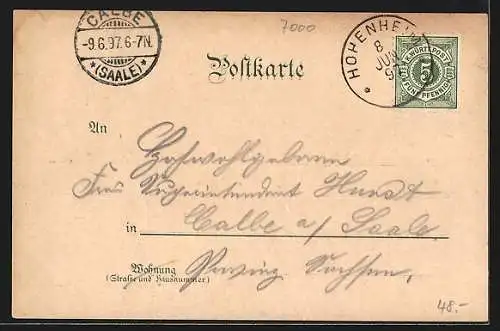 CALBE
-9.6.97.6-7N.
*(SAALE)*
7000
Postkarte
* HOHENHEIM
8
JUN
K. WÜRTT. POST
5
FÜNF PFENNIG
An
Hochwohlgeboren
Frau Superintendent
in Calbe a/ Saale.
Wohnung
(Straße und Hausnummer)
Provinz Sachsen.
48.-